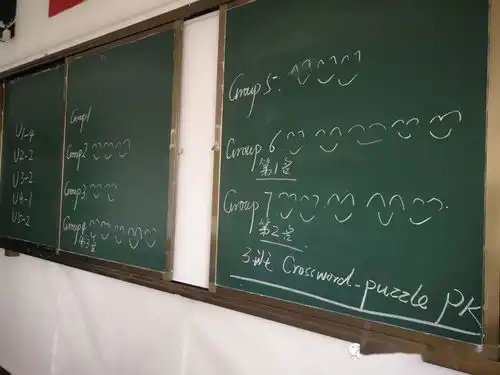 U1-4
U2-2
U3-2
U4-1
U5-2
Group1
Group2
Group3
Group4
第3名
Group 5:
Group 6
第1名
Group 7
第2名
3班 Crossword-puzzle PK